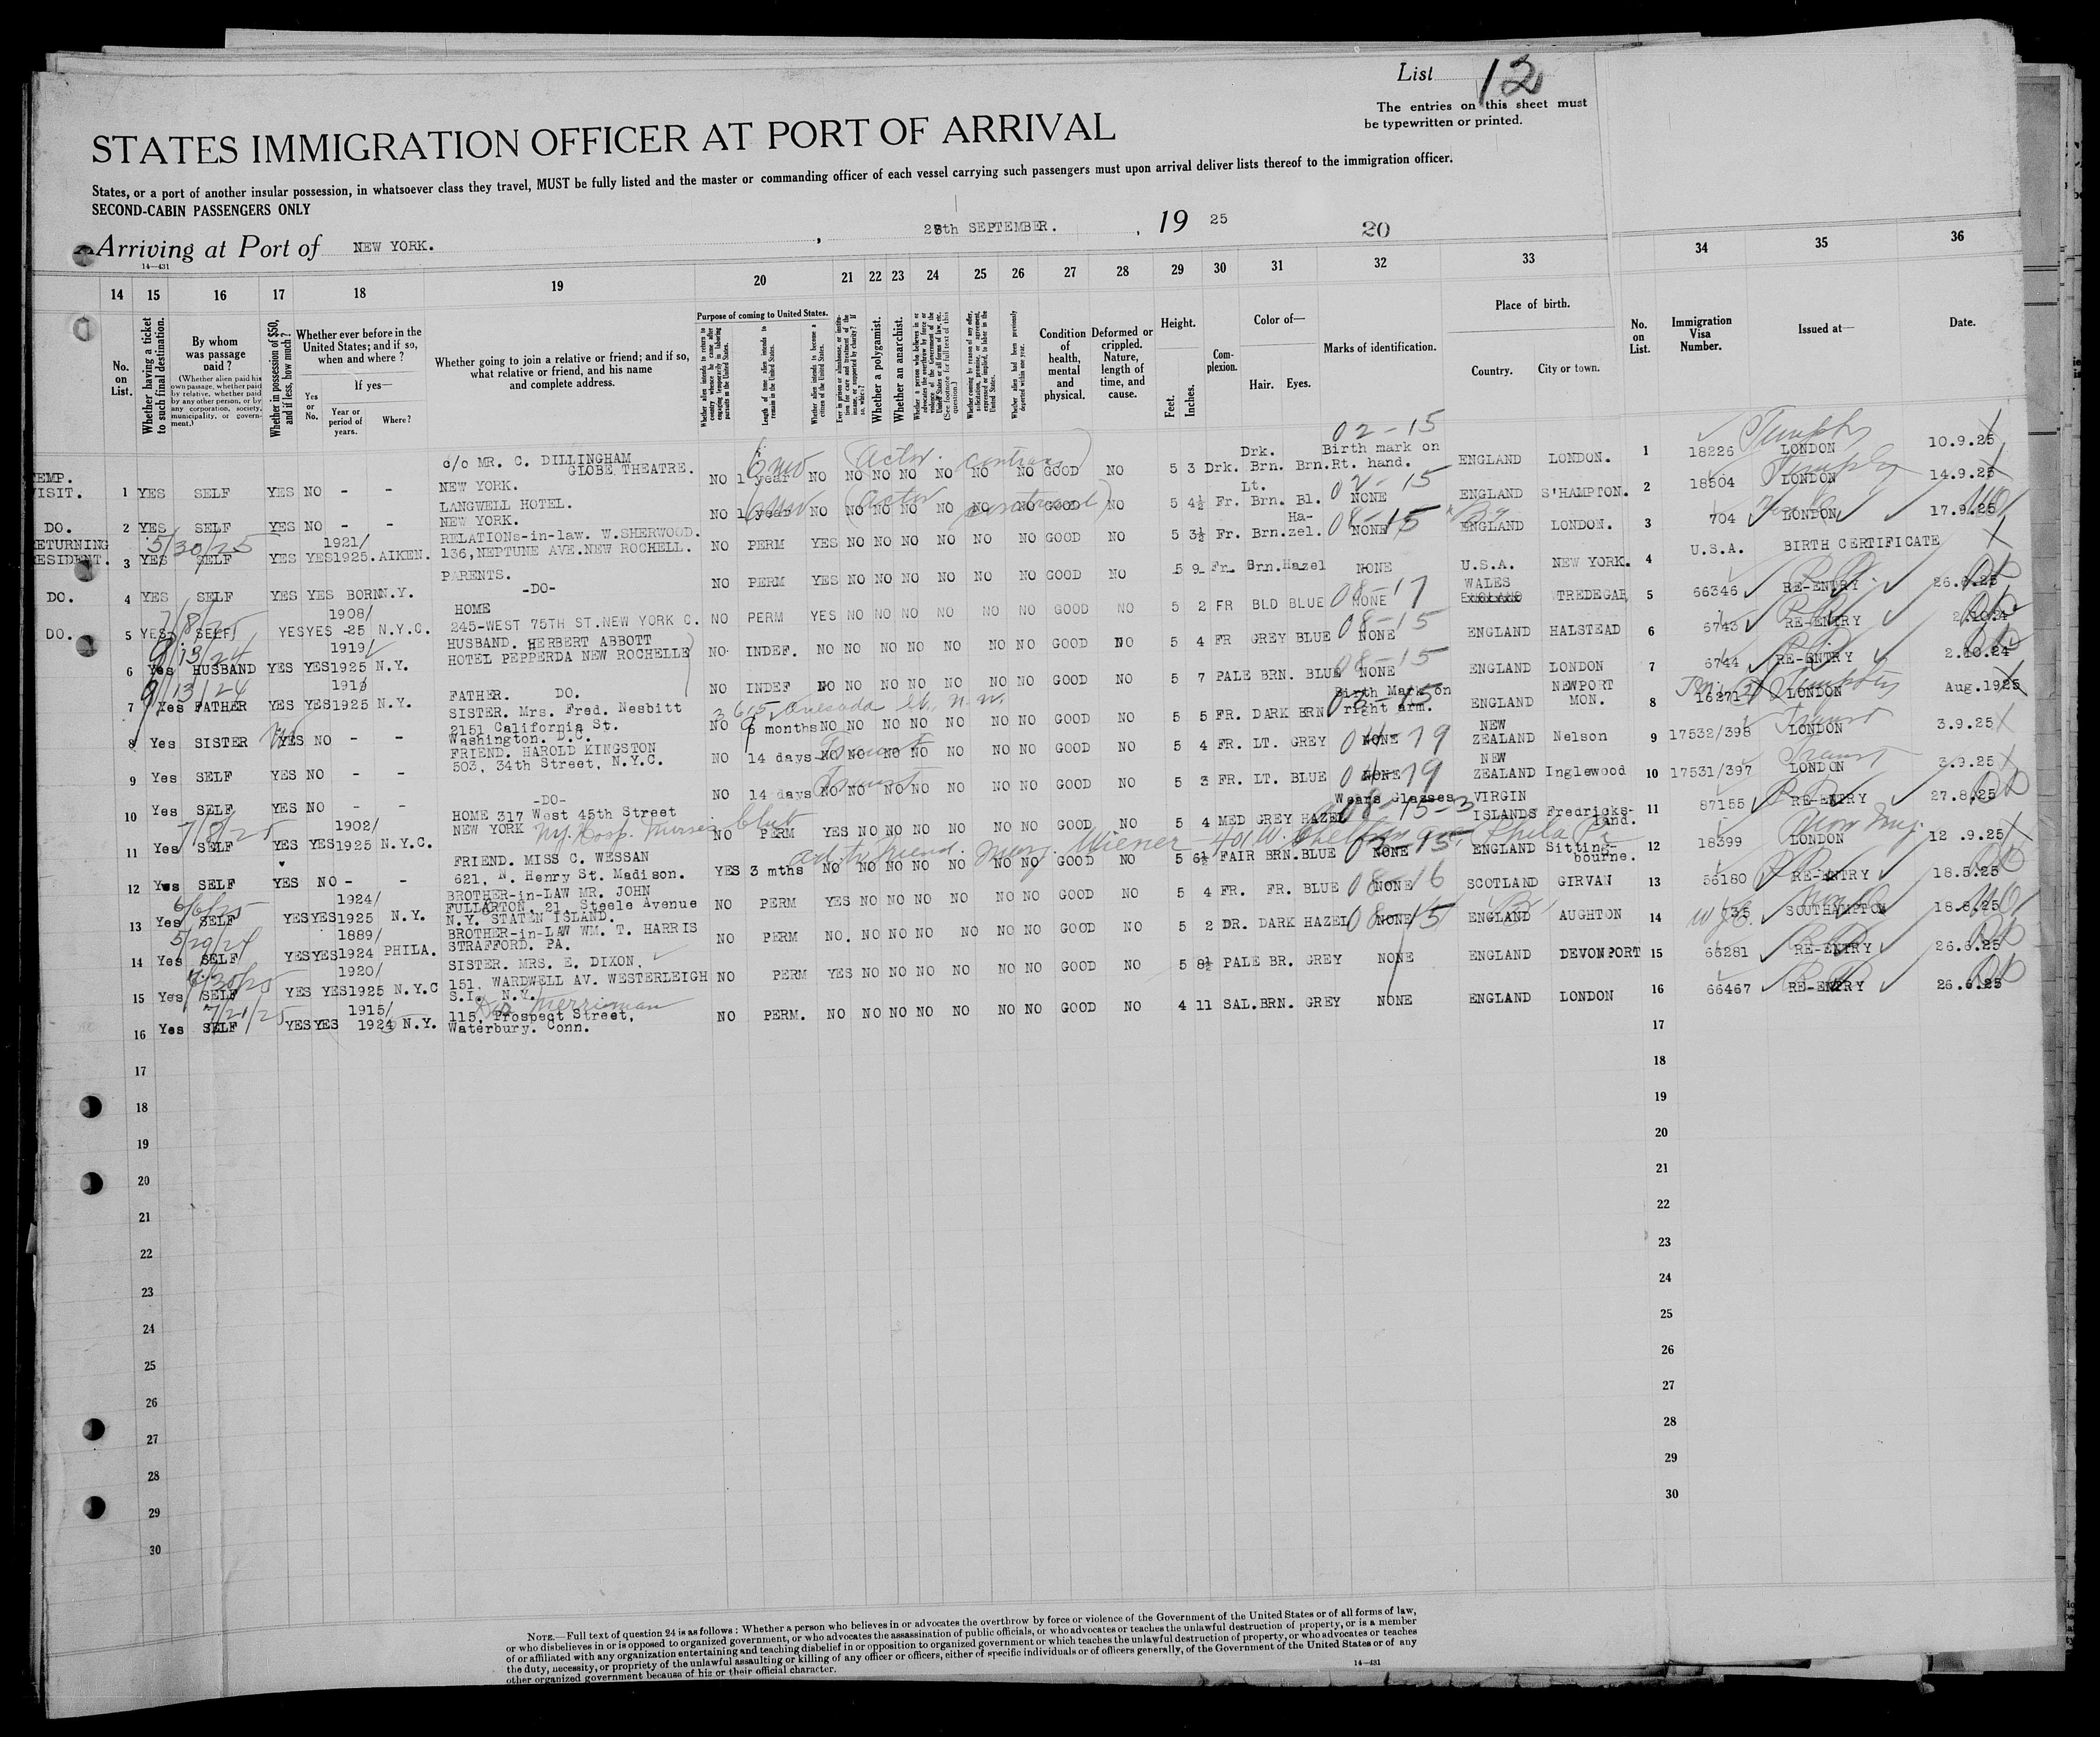 List 12
The entries on this sheet must
be typewritten or printed.
STATES IMMIGRATION OFFICER AT PORT OF ARRIVAL
States, or a port of another insular possession, in whatsoever class they travel, MUST be fully listed and the master or commanding officer of each vessel carrying such passengers must upon arrival deliver lists thereof to the immigration officer.
SECOND-CABIN PASSENGERS ONLY
Arriving at Port of NEW YORK. , SEPTEMBER. , 19 25 20
14—431
14 15 16 17 18 19 20 21 22 23 24 25 26 27 28 29 30 31 32 33 34 35 36
No. on List.
Whether having a ticket to such final destination.
By whom was passage paid?
(Whether alien paid his own passage, whether paid by relative, whether paid by any other person, or by any corporation, society, municipality, or government.)
Whether in possession of $50, and if less, how much?
Whether ever before in the United States; and if so, when and where?
If yes—
Yes or No.
Year or period of years.
Where?
Whether going to join a relative or friend; and if so, what relative or friend, and his name and complete address.
Purpose of coming to United States.
Length of time alien intends to remain in the United States.
Whether alien intends to become a citizen of the United States.
Whether a polygamist.
Whether an anarchist.
Condition of health, mental and physical.
Deformed or crippled. Nature, length of time, and cause.
Height.
Feet. Inches.
Complexion.
Color of—
Hair. Eyes.
Marks of identification.
Place of birth.
Country. City or town.
No. on List.
Immigration Visa Number.
Issued at—
Date.
02-15
c/o MR. C. DILLINGHAM
GLOBE THEATRE.
EMP.
ISIT. 1 YES SELF YES NO - - NEW YORK. NO 1 year NO NO NO NO NO NO NO GOOD NO 5 3 Drk. Drk. Brn. Brn. Birth mark on Rt. hand. ENGLAND LONDON. 1 18226 LONDON 10.9.25
LANGWELL HOTEL.
DO. 2 YES SELF YES NO - - NEW YORK. NO 1 year NO NO NO NO NO NO NO GOOD NO 5 4½ Fr. Lt. Brn. Bl. 02-15 NONE ENGLAND S'HAMPTON. 2 18504 LONDON 14.9.25
RELATIONS-in-law. W.SHERWOOD.
ETURNING
ESIDENT. 3 YES 5/30/25 SELF YES YES 1921/ 1925. AIKEN. 136,NEPTUNE AVE.NEW ROCHELL. NO PERM YES NO NO NO NO NO NO GOOD NO 5 3½ Fr. Brn. Ha-zel. 08-15 NONE ENGLAND LONDON. 3 704 LONDON 17.9.25
PARENTS.
DO. 4 YES SELF YES YES BORN N.Y. -DO- NO PERM YES NO NO NO NO NO NO GOOD NO 5 9 Fr. Brn. Hazel NONE U.S.A. NEW YORK. 4 U.S.A. BIRTH CERTIFICATE
HOME
DO. 5 YES 7/8/25 SELF YES YES 1908/ -25 N.Y.C. 245-WEST 75TH ST.NEW YORK C. NO PERM YES NO NO NO NO NO NO GOOD NO 5 2 FR BLD BLUE 08-17 NONE WALES TREDEGAR 5 66346 RE-ENTRY 26.6.25
HUSBAND. HERBERT ABBOTT
6 Yes 9/13/24 HUSBAND YES YES 1919/ 1925 N.Y. HOTEL PEPPERDA NEW ROCHELLE NO INDEF. NO NO NO NO NO NO NO GOOD NO 5 4 FR GREY BLUE 08-15 NONE ENGLAND HALSTEAD 6 6743 RE-ENTRY
7 Yes 9/13/24 FATHER YES YES 1925 N.Y. FATHER. DO. NO INDEF NO NO NO NO NO NO NO GOOD NO 5 7 PALE BRN. BLUE 08-15 NONE ENGLAND LONDON 7 6744 RE-ENTRY 2.10.24
SISTER. Mrs. Fred. Nesbitt 3615 Quesada St. n.w.
2151 California St.
8 Yes SISTER YES NO - - Washington. D.C. NO 6 months NO NO NO NO NO NO NO GOOD NO 5 5 FR. DARK BRN Birth Mark on right arm. ENGLAND NEWPORT MON. 8 16271 LONDON Aug.1925
FRIEND. HAROLD KINGSTON
9 Yes SELF YES NO - - 503, 34th Street, N.Y.C. NO 14 days NO NO NO NO NO NO NO GOOD NO 5 4 FR. LT. GREY 04-19 NONE NEW ZEALAND Nelson 9 17532/398 LONDON 3.9.25
10 Yes SELF YES NO - - -DO- NO 14 days NO NO NO NO NO NO NO GOOD NO 5 3 FR. LT. BLUE 04-19 NONE NEW ZEALAND Inglewood 10 17531/397 LONDON 3.9.25
HOME 317 West 45th Street
11 Yes 7/8/25 SELF YES YES 1902/ 1925 N.Y.C. NEW YORK N.Y. Hosp. Nurses Club NO PERM YES NO NO NO NO NO NO GOOD NO 5 4 MED GREY HAZEL Wears Glasses VIRGIN ISLANDS Fredricks-land. 11 87155 RE-ENTRY 27.8.25
FRIEND. MISS C. WESSAN
12 Yes SELF YES NO - - 621, N. Henry St. Madison. YES 3 mths NO NO NO NO NO NO NO GOOD NO 5 6½ FAIR BRN. BLUE NONE ENGLAND Sitting-bourne. 12 18399 LONDON 12.9.25
BROTHER-in-LAW MR. JOHN
FULLARTON, 21, Steele Avenue
13 Yes SELF YES YES 1924/ 1925 N.Y. N.Y. STATEN ISLAND. NO PERM YES NO NO NO NO NO NO GOOD NO 5 4 FR. FR. BLUE 08-16 NONE SCOTLAND GIRVAN 13 56180 RE-ENTRY 18.5.25
BROTHER-in-LAW WM. T. HARRIS
14 Yes 5/29/24 SELF YES YES 1889/ 1924 PHILA. STRAFFORD. PA. NO PERM NO. NO NO NO NO NO NO GOOD NO 5 2 DR. DARK HAZEL 08-15 NONE ENGLAND AUGHTON 14 35 SOUTHAMPTON 18.8.25
SISTER. MRS. E. DIXON.
151, WARDWELL AV. WESTERLEIGH
15 Yes SELF YES YES 1920/ 1925 N.Y.C S.I. N.Y. NO PERM YES NO NO NO NO NO NO GOOD NO 5 8½ PALE BR. GREY NONE ENGLAND DEVONPORT 15 66281 RE-ENTRY 26.6.25
115, Prospect Street, Merriman
16 Yes 7/21/25 SELF YES YES 1915/ 1924 N.Y. Waterbury. Conn. NO PERM. NO NO NO NO NO NO NO GOOD NO 4 11 SAL. BRN. GREY NONE ENGLAND LONDON 16 66467 RE-ENTRY 26.6.25
17 17
18 18
19 19
20 20
21 21
22 22
23 23
24 24
25 25
26 26
27 27
28 28
29 29
30 30
NOTE.—Full text of question 24 is as follows: Whether a person who believes in or advocates the overthrow by force or violence of the Government of the United States or of all forms of law,
or who disbelieves in or is opposed to organized government, or who advocates the assassination of public officials, or who advocates or teaches the unlawful destruction of property, or is a member
of or affiliated with any organization entertaining and teaching disbelief in or opposition to organized government or which teaches the unlawful destruction of property, or who advocates or teaches
the duty, necessity, or propriety of the unlawful assaulting or killing of any officer or officers, either of specific individuals or of officers generally, of the Government of the United States or of any
other organized government because of his or their official character.
14—431